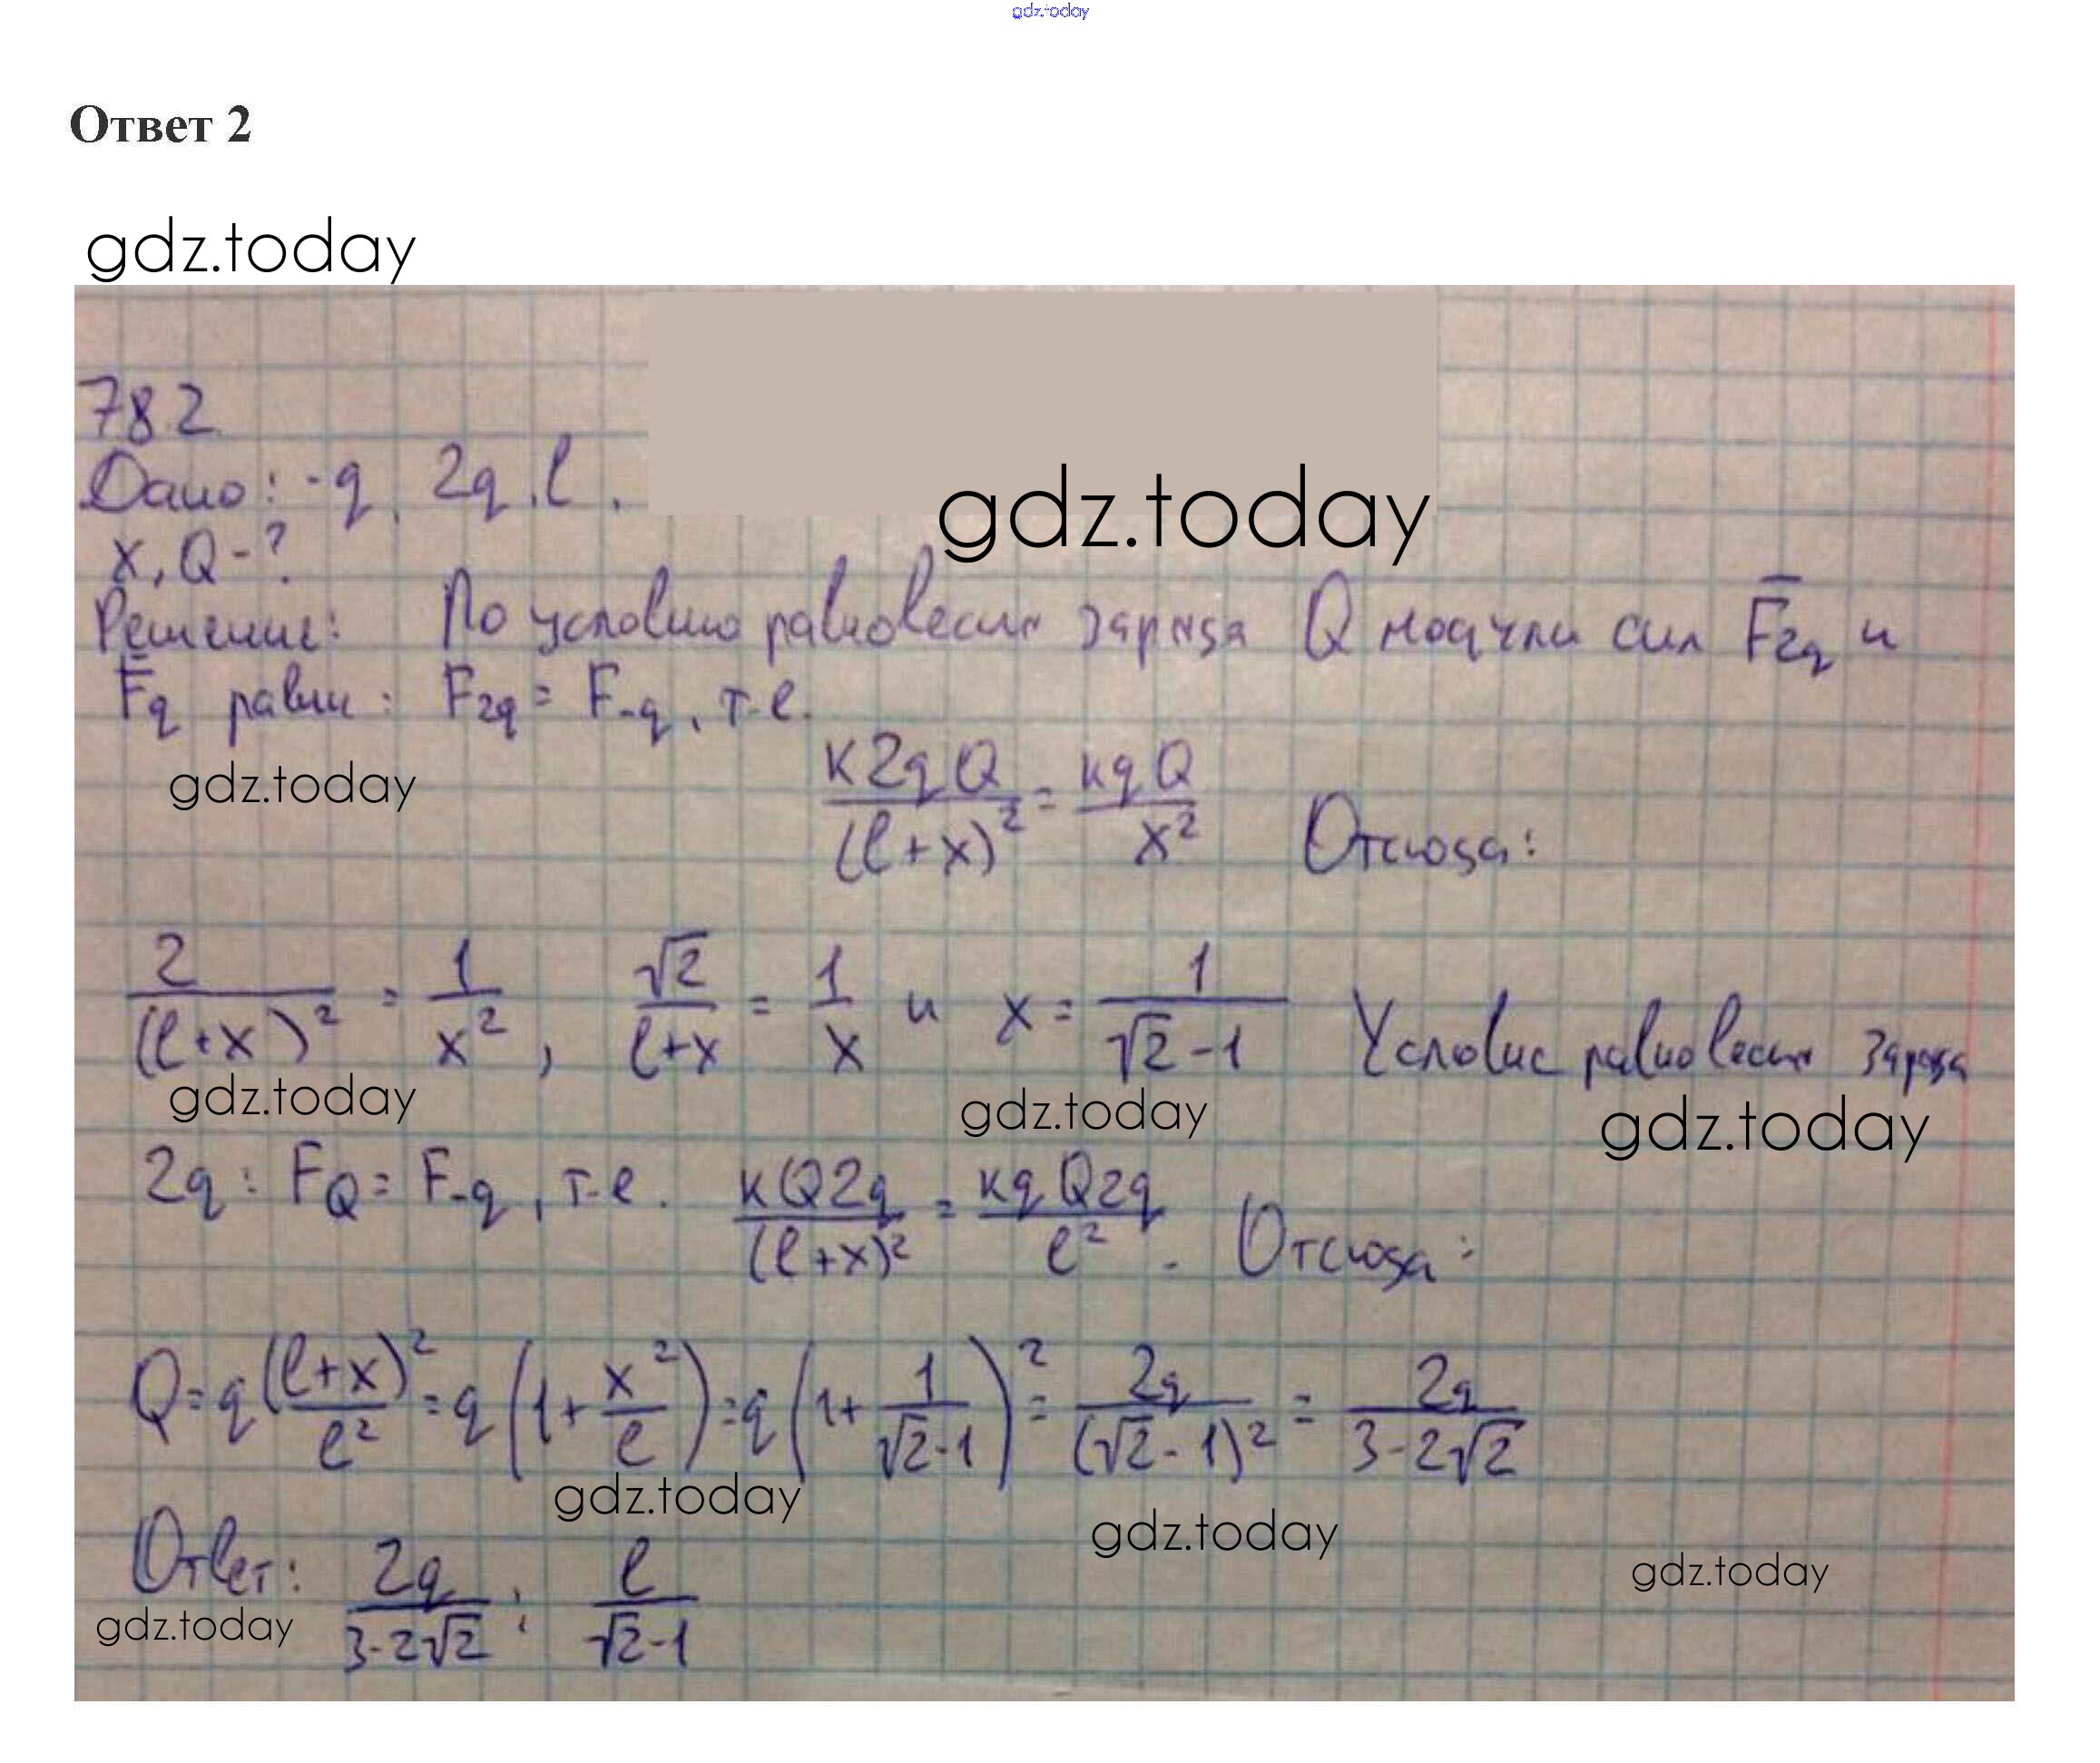 gdz.today
Ответ 2
gdz.today
782
Дано: -q, 2q, l.
gdz.today
x, Q - ?
Решение: По условию равновесия заряда Q модули сил F̅2q и
F̅q равны: F2q = F-q, т.е.
gdz.today
k2qQ/(l+x)² = kqQ/x² Отсюда:
2/(l+x)² = 1/x², √2/(l+x) = 1/x и x = 1/(√2-1) Условие равновесия заряда
gdz.today gdz.today gdz.today
2q: FQ = F-q, т.е. kQ2q/(l+x)² = kqQ2q/l². Отсюда:
Q = q(l+x)²/l² = q(1+x²/l) = q(1+1/(√2-1))² = 2q/(√2-1)² = 2q/(3-2√2)
gdz.today gdz.today
Ответ: 2q/(3-2√2); l/(√2-1)
gdz.today gdz.today